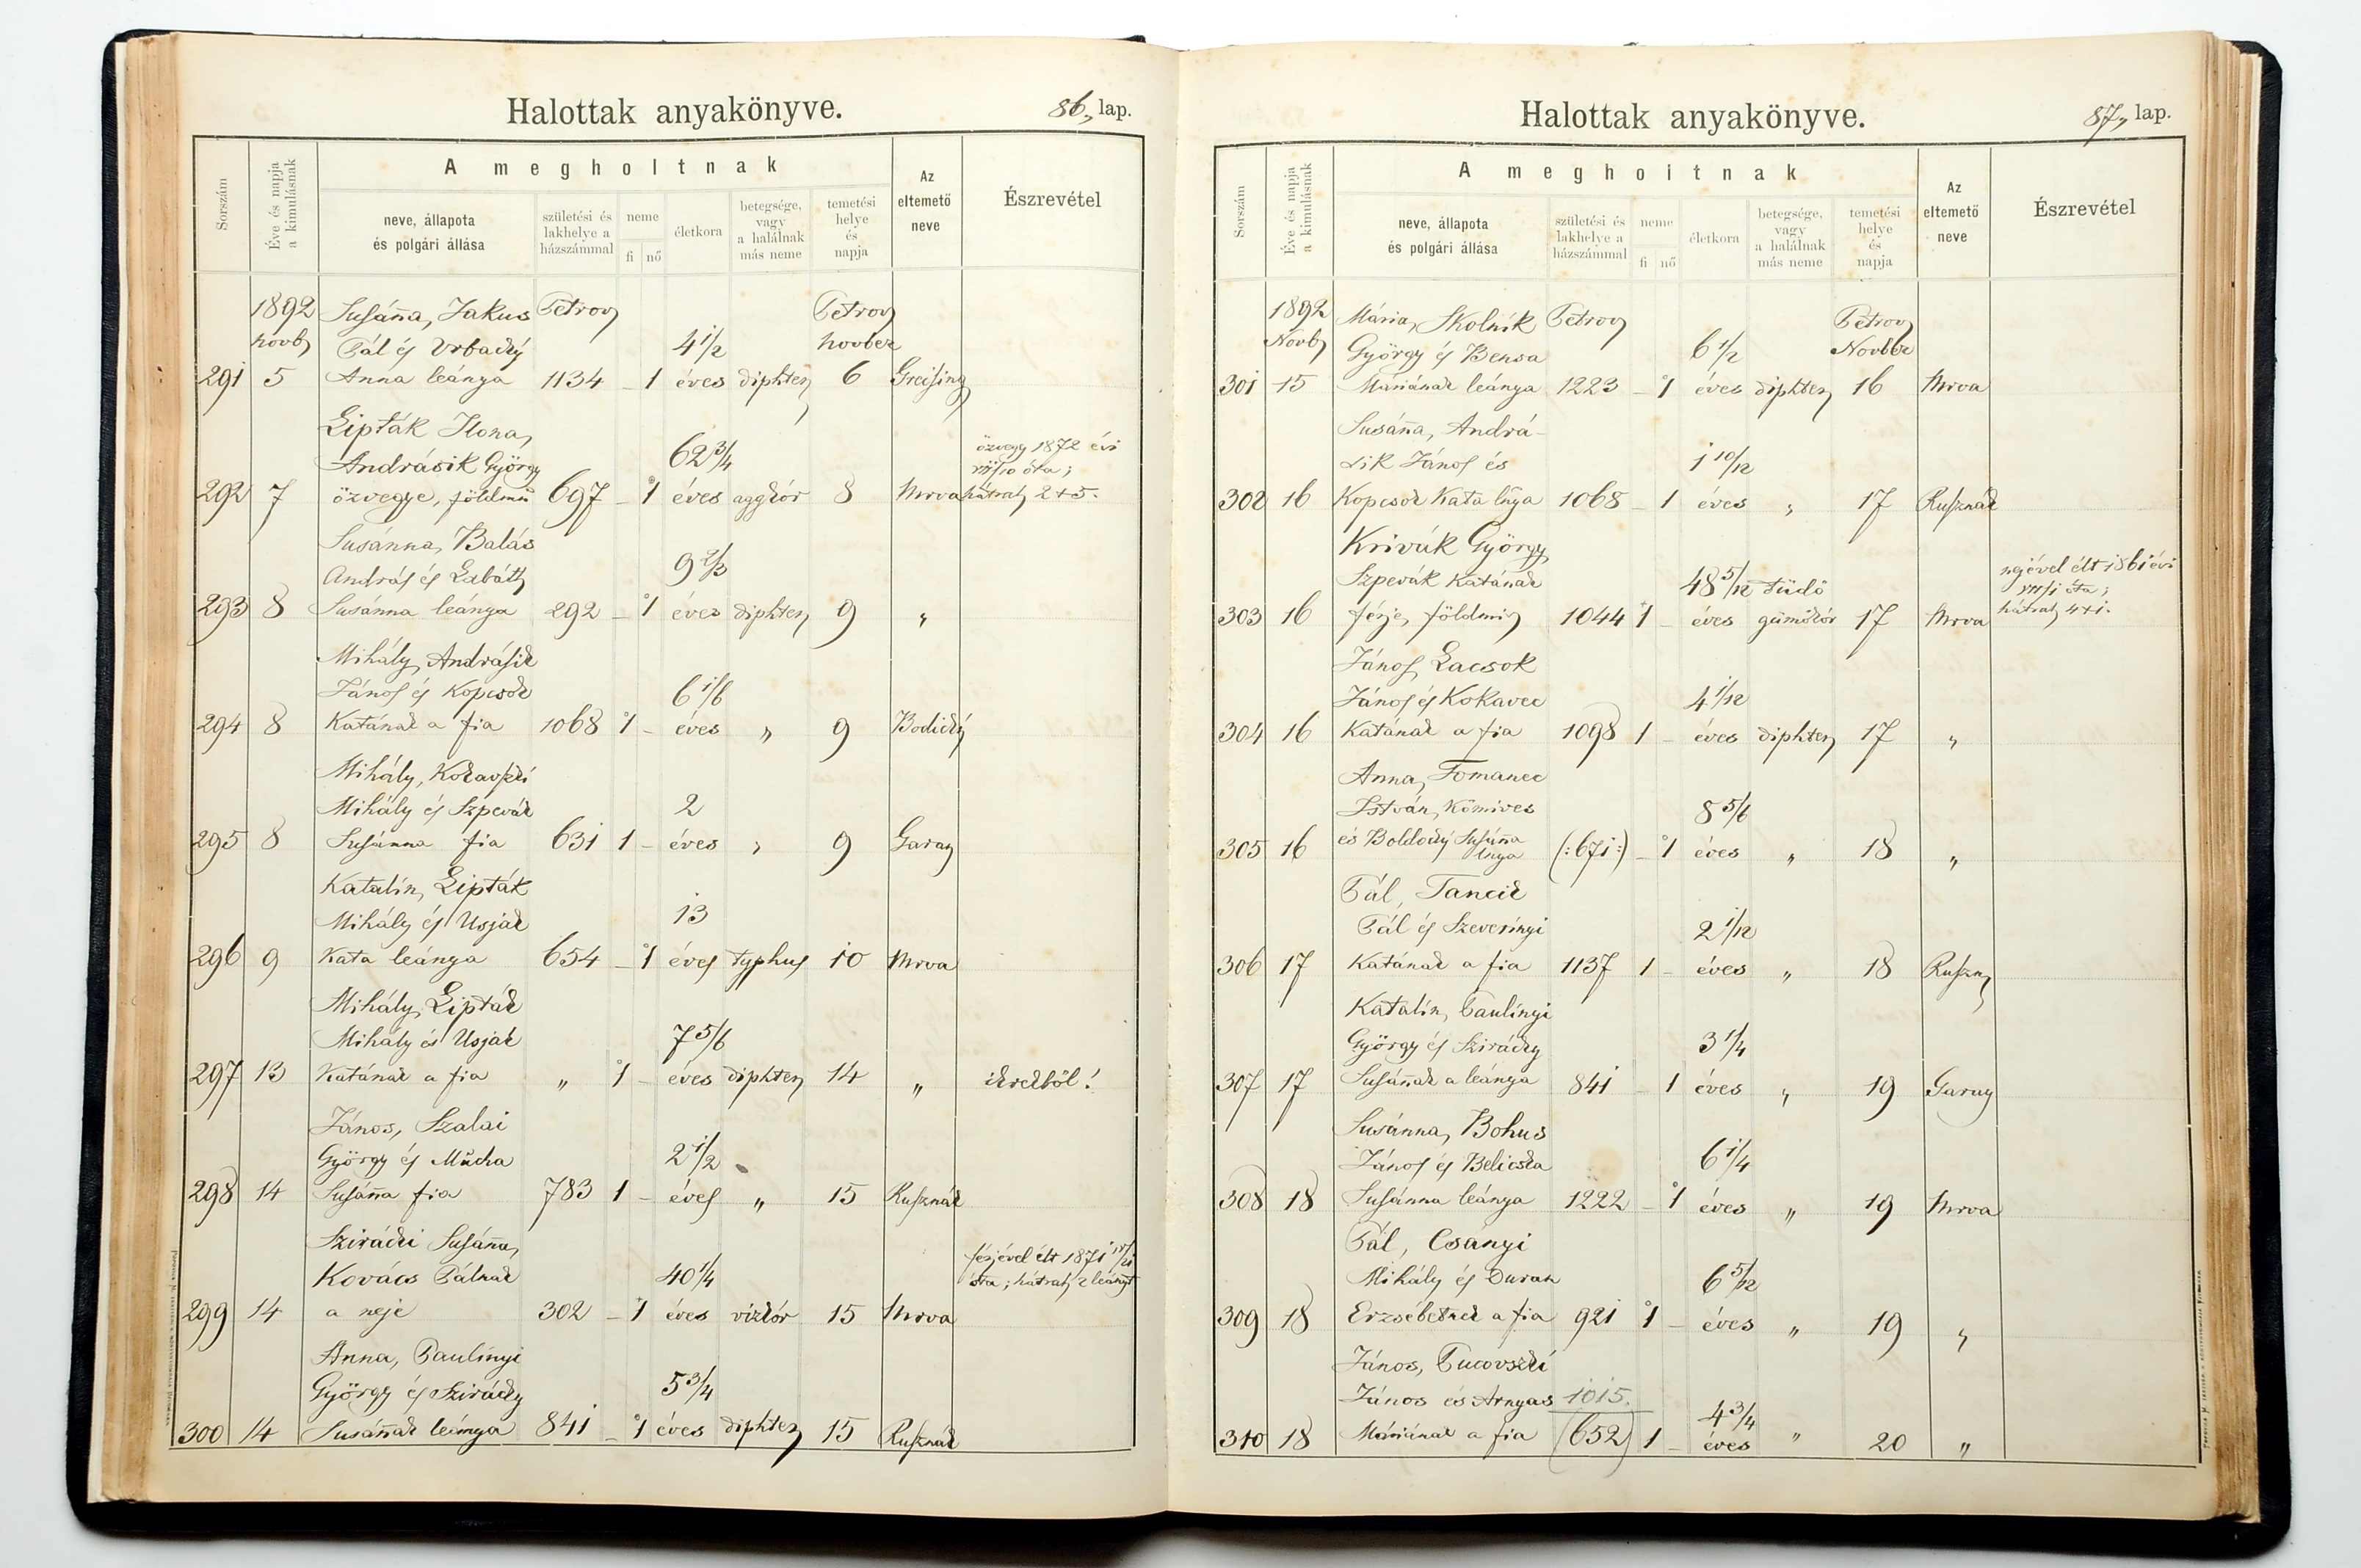 Halottak anyakönyve.
86, lap.
Sorszám
Éve és napja a kimulásnak
A megholtnak
neve, állapota és polgári állása
születési és lakhelye a házszámmal
neme
fi nő
életkora
betegsége, vagy a halálnak más neme
temetési helye és napja
Az eltemető neve
Észrevétel
1892 Susánna, Jakus Petrov Petrov
novb Pál és Vrbacký 4 1/2 novber
291 5 Anna leánya 1134 – 1 éves diphter 6 Greifing
Lipták Ilona,
Andrásik György 62 3/4 özvegy 1872 évi
292 7 özvegye, földmű 697 – 1 éves aggkór 8 Mrva hátrah 2+5.
Susánna, Balás
András és Labáth 9 2/3
293 8 Susánna leánya 292 – 1 éves diphter 9 „
Mihály, Andrásik
János és Kopcsok 6 1/6
294 8 Katának a fia 1068 1 – éves „ 9 Bodický
Mihály, Kokavski
Mihály és Szpevák 2
295 8 Susánna fia 631 1 – éves „ 9 Garay
Katalín, Lipták
Mihály és Usják 13
296 9 Kata leánya 654 – 1 éves typhus 10 Mrva
Mihály, Lipták
Mihály és Usják 7 5/6
297 13 Katának a fia „ 1 – éves diphter 14 „ ikrekből!
János, Szalai
György és Mucha 2 1/2
298 14 Susánna fia 783 1 – éves „ 15 Rusznák
Szirácki Susánna, férjével élt 1871
Kovács Pálnak 40 1/4 óta; hátrah 2 leányt
299 14 a neje 302 – 1 éves vízkór 15 Mrva
Anna, Paulínyi
György és Szirácky 5 3/4
300 14 Susánnak leánya 841 – 1 éves diphter 15 Rusznák
Halottak anyakönyve.
87, lap.
Sorszám
Éve és napja a kimulásnak
A megholtnak
neve, állapota és polgári állása
születési és lakhelye a házszámmal
neme
fi nő
életkora
betegsége, vagy a halálnak más neme
temetési helye és napja
Az eltemető neve
Észrevétel
1892 Mária, Skolnik Petrov Petrov
Novb György és Bensa 6 1/2 Novbbr
301 15 Máriának leánya 1223 – 1 éves diphter 16 Mrva
Susánna, Andrá-
sik János és 1 10/12
302 16 Kopcsok Kata lnya 1068 – 1 éves „ 17 Rusznák
Krivák György,
Szpevák Katának 48 5/12 tüdő nejével élt 1861 évi
303 16 férje, földmiv 1044 1 – éves gümőkór 17 Mrva hátrah 4+1.
János, Lacsok
János és Kokavec 4 1/12
304 16 Katának a fia 1098 1 – éves diphter 17 „
Anna, Tomanec
István, Kőmives 8 5/6
305 16 és Boldocký Susánna lnya (:671:) – 1 éves „ 18 „
Pál, Tancik
Pál és Szeverínyi 2 1/12
306 17 Katának a fia 1137 1 – éves „ 18 Ruszn
Katalín, Paulínyi
György és Szirácky 3 1/4
307 17 Susának a leánya 841 – 1 éves „ 19 Garay
Susánna, Bohus
János és Belicska 6 1/4
308 18 Susánna leánya 1222 – 1 éves „ 19 Mrva
Pál, Csányi
Mihály és Duran 6 5/12
309 18 Erzsébetnek a fia 921 1 – éves „ 19 „
János, Pucovszki
János és Arnyas 1015. 4 3/4
310 18 Máriának a fia (652) 1 – éves „ 20 „